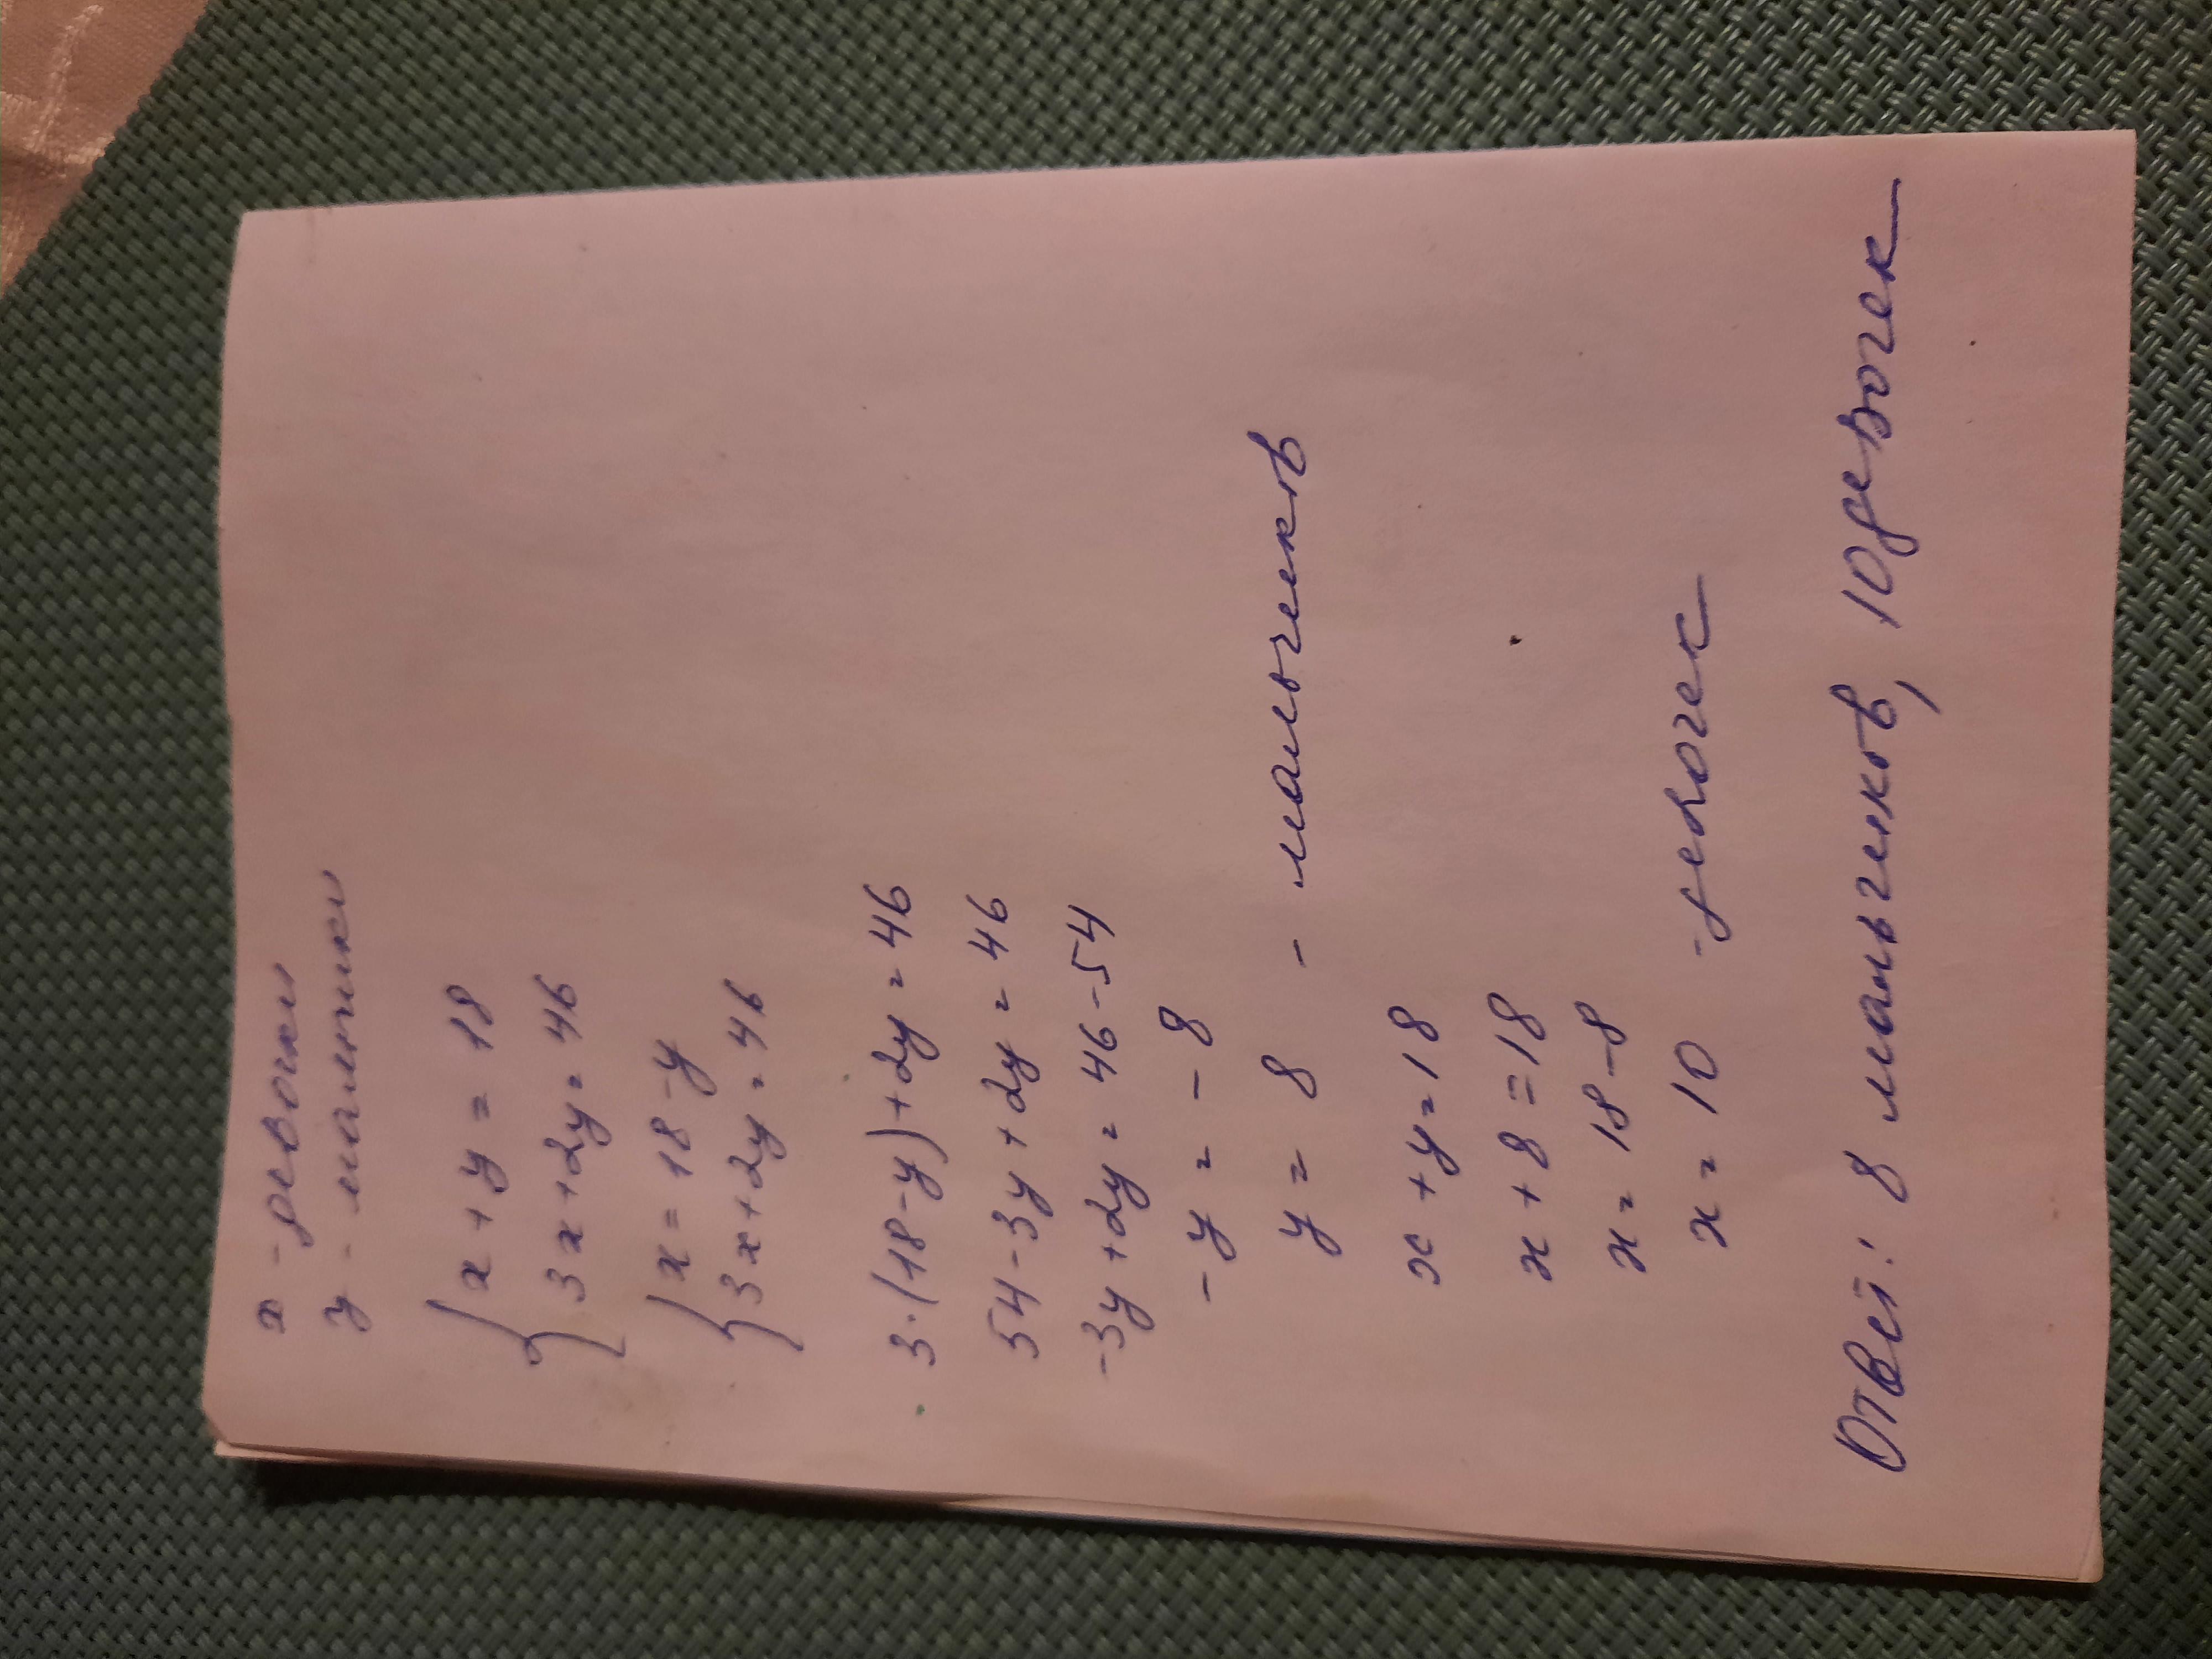 x - девочки
y - мальчики
{ x + y = 18
3x + 2y = 46
{ x = 18 - y
3x + 2y = 46
3·(18-y) + 2y = 46
54 - 3y + 2y = 46
-3y + 2y = 46 - 54
-y = -8
y = 8 - мальчиков
x + y = 18
x + 8 = 18
x = 18 - 8
x = 10 - девочек
Ответ: 8 мальчиков, 10 девочек